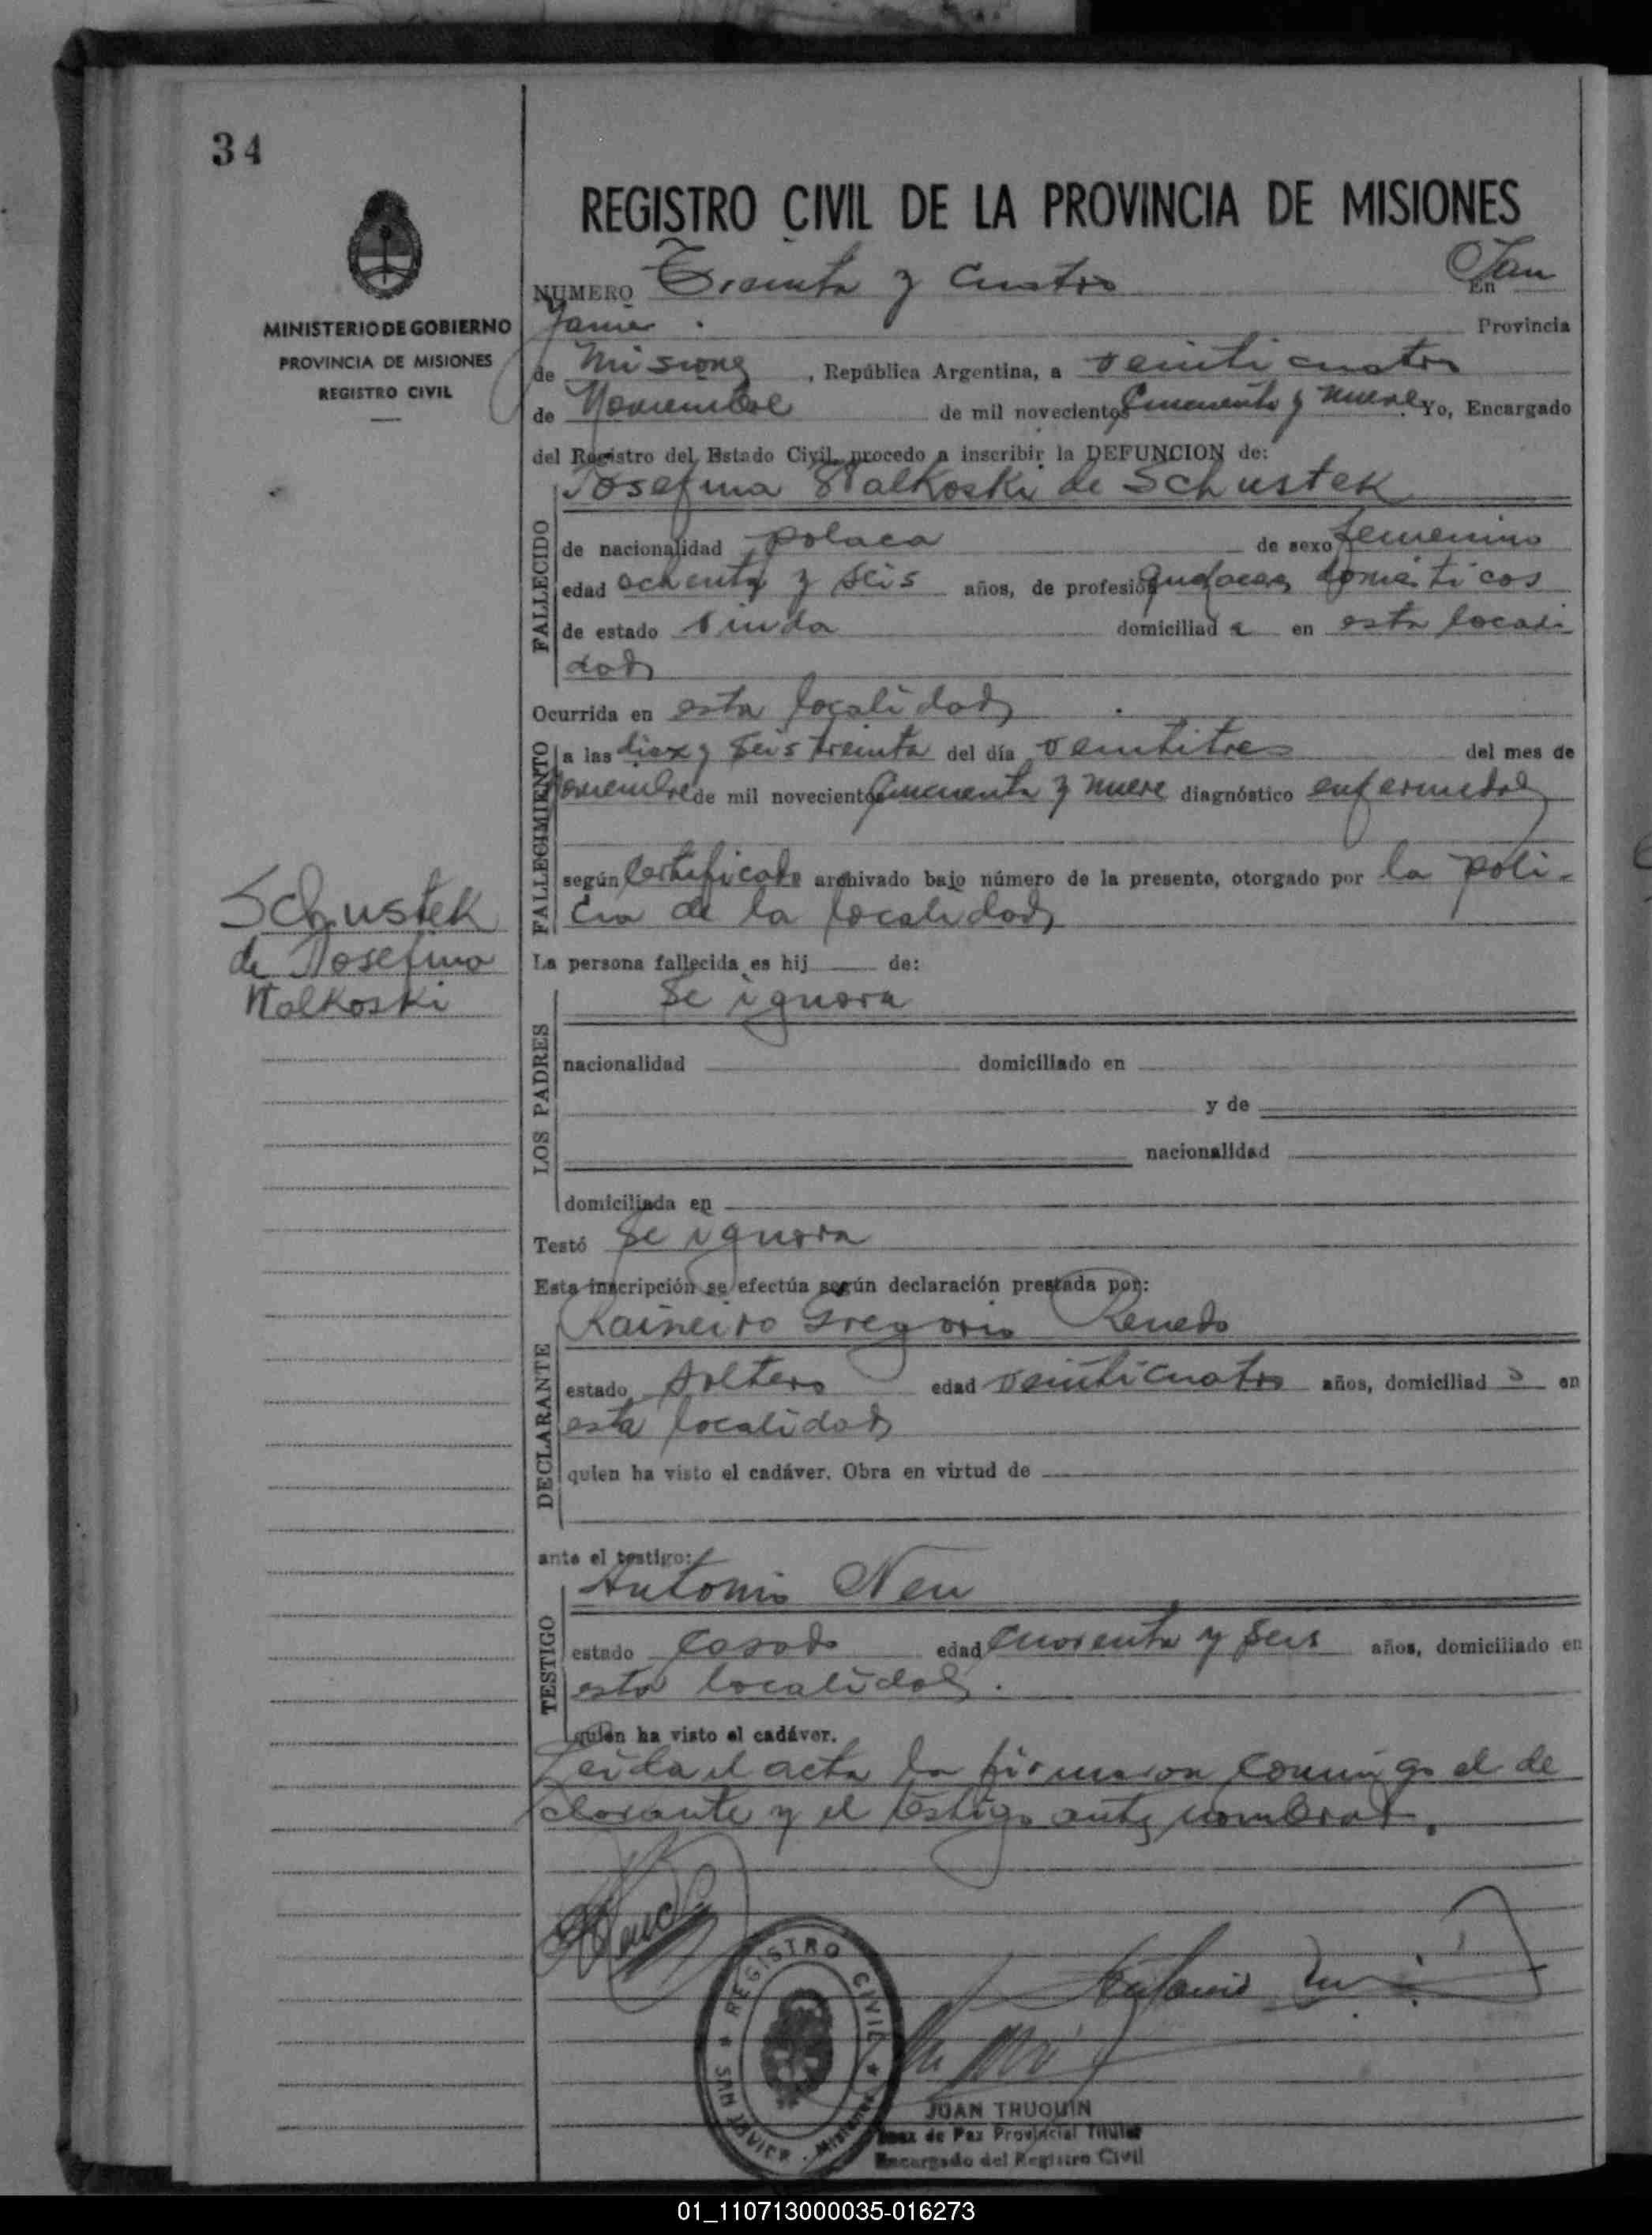 34
MINISTERIO DE GOBIERNO
PROVINCIA DE MISIONES
REGISTRO CIVIL
REGISTRO CIVIL DE LA PROVINCIA DE MISIONES
NUMERO Treinta y Cuatro En San
Javier. Provincia
de Misiones, República Argentina, a veinticuatro
de Noviembre de mil novecientos Cincuenta y nueve Yo, Encargado
del Registro del Estado Civil, procedo a inscribir la DEFUNCION de:
FALLECIDO
Josefina Walkoski de Schustek
de nacionalidad polaca de sexo femenino
edad ochenta y seis años, de profesión quehaceres domésticos
de estado viuda domiciliada en esta locali
dad
Ocurrida en esta localidad
FALLECIMIENTO
a las diez y seis treinta del día veintitres del mes de
Noviembre de mil novecientos Cincuenta y nueve diagnóstico enfermedad
según Certificado archivado bajo número de la presente, otorgado por la poli-
cia de la localidad
Schustek
de Josefina
Walkoski
La persona fallecida es hij de:
LOS PADRES
Se ignora
nacionalidad domiciliado en
y de
nacionalidad
domiciliada en
Testó Se ignora
Esta inscripción se efectúa según declaración prestada por:
DECLARANTE
Raineiro Gregorio Renedo
estado soltero edad veinticuatro años, domiciliado en
esta localidad
quien ha visto el cadáver. Obra en virtud de
ante el testigo:
TESTIGO
Antonio Neu
estado casado edad cuarenta y seis años, domiciliado en
esta localidad.
quien ha visto el cadáver.
Leida el acta la firmaron conmigo el de
clarante y el testigo antes nombrad.
REGISTRO CIVIL
SAN JAVIER - Misiones
Antonio
JUAN TRUQUIN
Juez de Paz Provincial Titular
Encargado del Registro Civil
01_110713000035-016273